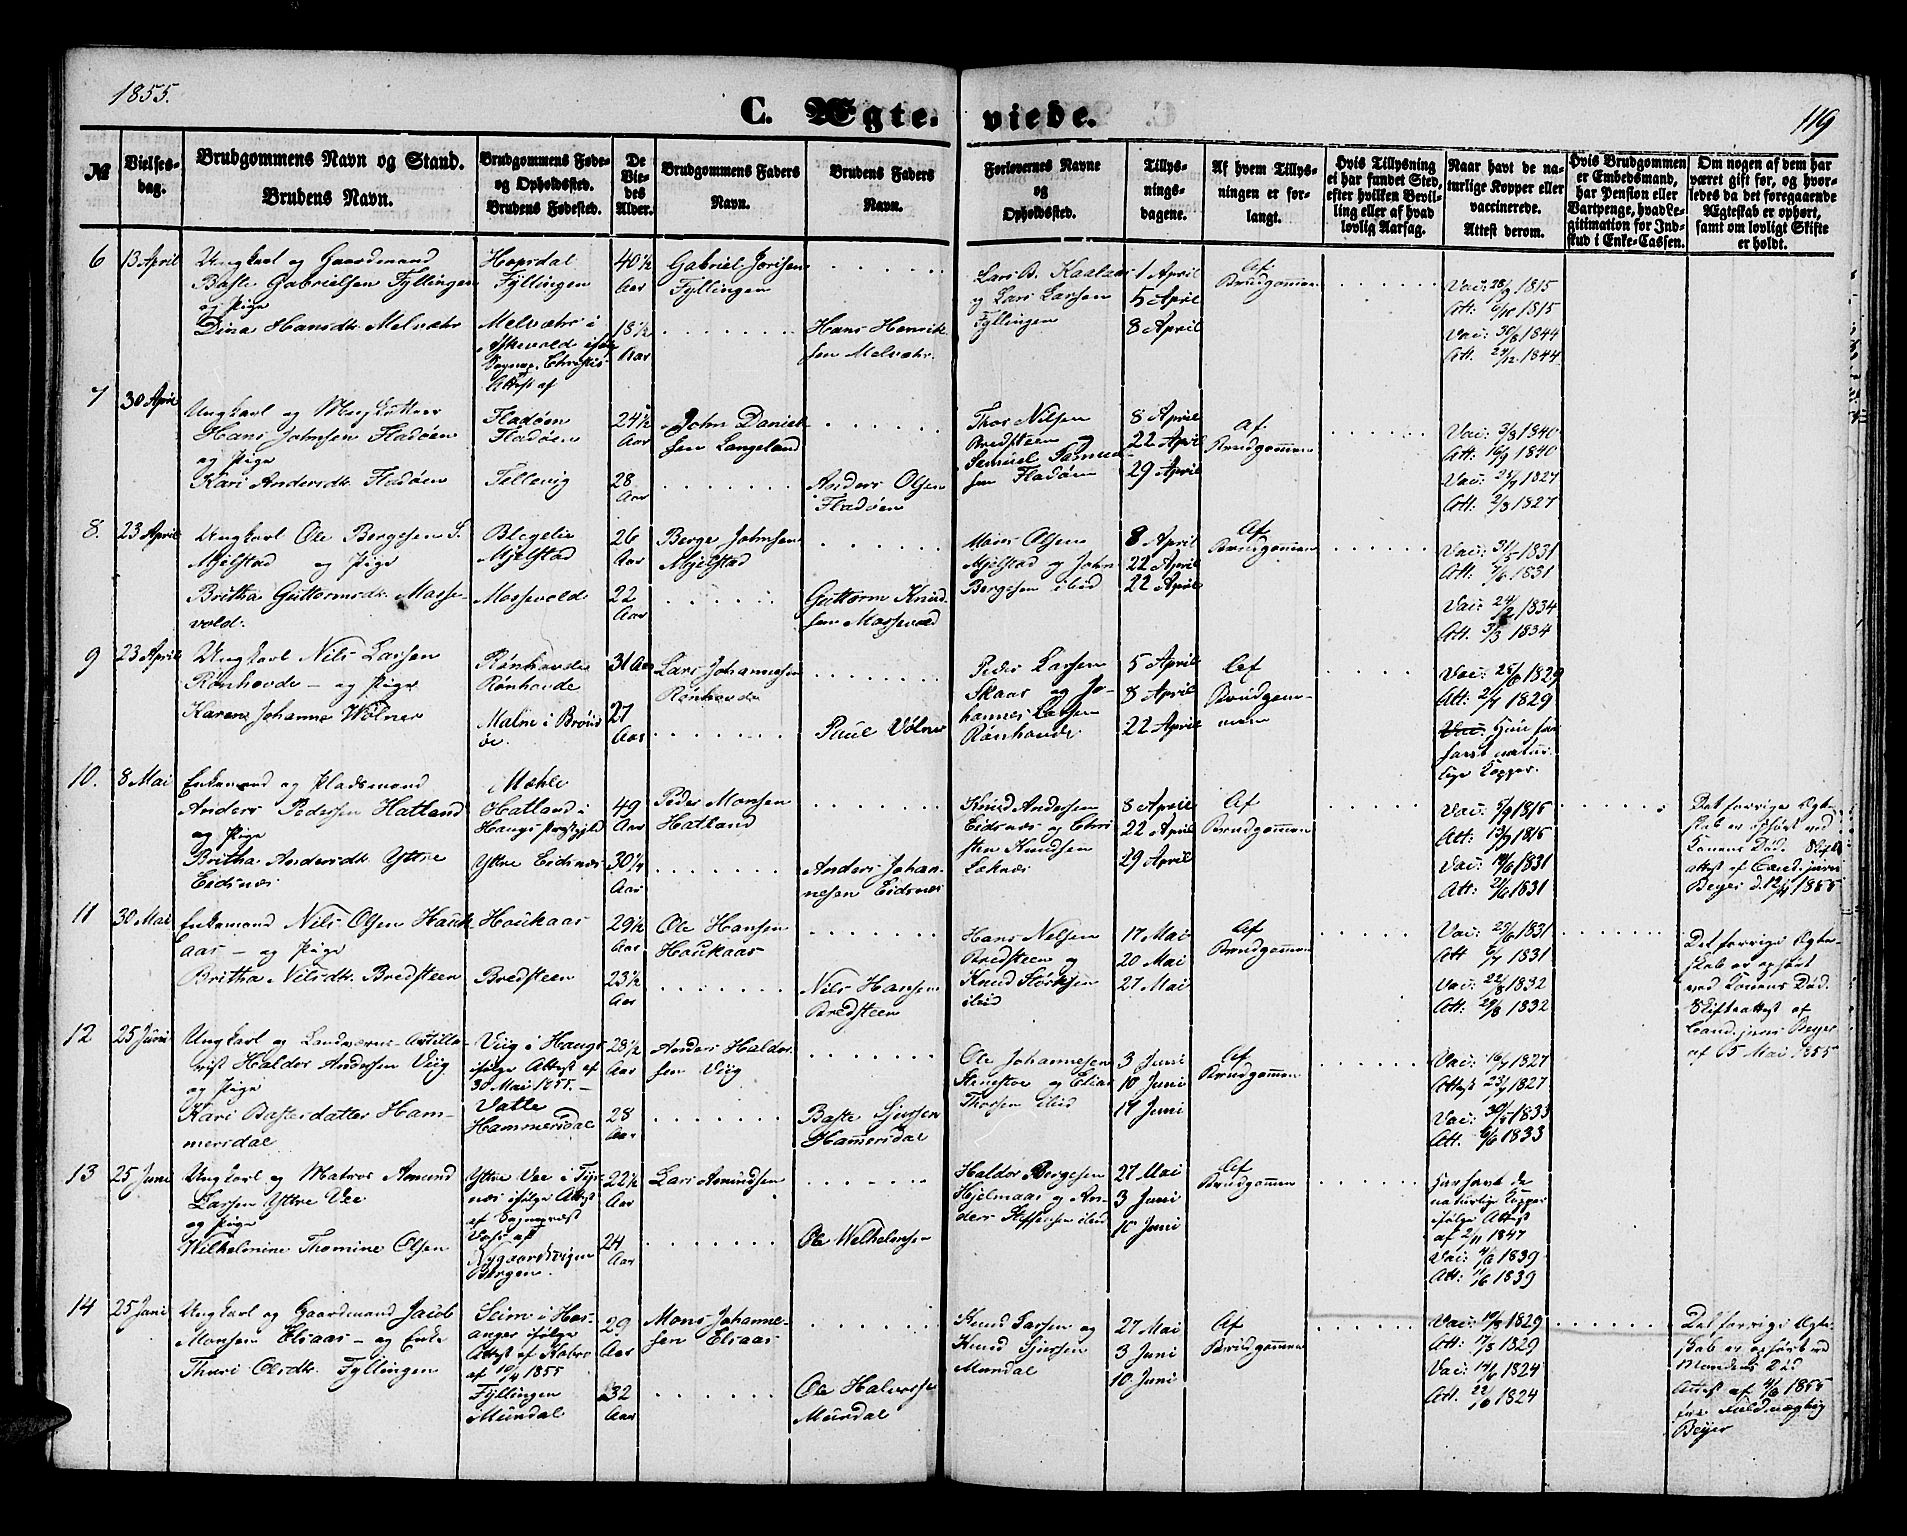 1855.
119
C. Ægte- viede. 
№
Vielses-
dag.
Brudgommens Navn og Stand.
Brudens Navn.
Brudgommens Føde-
og Opholdssted.
Brudens Fødested.
De
Vie-
des
Alder.
Brudgommens Faders
Navn.
Brudens Faders
Navn.
Forlovernes Navne
og
Opholdssted.
Tillys-
nings-
dagene.
Af hvem Tillys-
ningen er for-
langt.
Hvis Tillysning
ei har fundet Sted,
efter hvilken Bevil-
ling eller af hvad
lovlig Aarsag.
Naar havt de na-
turlige Kopper eller
vaccinerede.
Attest derom.
Hvis Brudgommen
er Embedsmand,
har Pension eller
Vartpenge, hvad Le-
gitimation for Ind-
skud i Enke-Cassen.
Om nogen af dem har
været gift før, og hvor-
ledes da det foregaaende
Ægteskab er ophørt,
samt om lovligt Skifte
er holdt.
6
13 April
Ungkarl og Gaardmand
Baste Gabrielsen Fyllingen
og Pige
Dina Hansdtr. Melvær
Hopsdal
Fyllingen
Melvær i
Askevold
Attest af
40½
Aar
18½
Aar
Gabriel Jorisen
Fyllingen
Hans Henrik-
sen Melvær.
Lars B. Kaalaas
og Lars Larsen
Fyllingen
1 April
5 April
8 April
Af
Brudgommen
Vac: 28/9 1815
Att: 6/10 1815
Vac: 30/8 1844
Att. 29/12 1844
7
30 April
Ungkarl og
Hans Johnsen Fladøen
og Pige
Kari Andersdtr. Fladøen
Fladøen
Fladøen
Tellevig
24½
Aar
28
Aar
John Daniel-
sen Langeland
Anders Olsen
Fladøen
Thor Nilsen
Bredsteen og
Samuel Samuel-
sen Fladøen
8 April
22 April
29 April
Af
Brudgommen
Vac: 3/8 1840
Att: 16/9 1840
Vac: 25/7 1827
Att: 2/8 1827
8.
23 April
Ungkarl Ole Bergesen S.
Mjelstad og Pige
Britha Guttormsdtr. Masse-
vold.
Blegelie
Mjelstad
Massevold
26
Aar
22
Aar
Berge Johnsen
Mjelstad
Guttorm Knud-
sen Massevold
Mons Olsen
Mjelstad og John
Bergesen ibid
8 April
22 April
22 April
Af
Brudgommen
Vac: 31/5 1831
Att: 7/6 1831
Vac: 24/2 1834
Att. 3/3 1834
9
23 April
Ungkarl Nils Larsen
Rønhovde - og Pige
Karen Johanna Wølner
Rønhovde
Rønhovde
Malne i Brøns
øe.
31 Aar
27
Aar
Lars Johannesen
Rønhovde
Paul Vølner
Peder Larsen
Skaar og Jo-
hannes Larsen
Rønhovde
5 April
8 April
22 April
Af
Brudgom-
men
Vac: 25/6 1829
Att: 2/7 1829
Hun har
havt natur-
lige Kopper.
10.
8 Mai
Enkemand og Pladsmand
Anders Pedersen Hatland
og Pige
Britha Andersdtr. Yttre
Eidsnes
Mæhle
Hatland i
Haugs Præstegjeld
Yttre Eidsnes
49
Aar
30¼
Aar
Peder Monsen
Hatland
Anders Johan-
nesen Eidsnes
Knud Andersen
Eidsnes og Chri
sten Knudsen
8 April
22 April
29 April
Af
Brudgommen
Vac: 5/9 1815
Att: 13/9 1815
Vac: 14/6 1831
Att: 21/6 1831
Det forrige Ægte-
skab er ophørt ved
Konens Død. Skifte
attest af Cand. juris
Beyer d. 12/4 1855
11
30 Mai
Enkemand Nils Olsen Hauk-
aas - og Pige
Britha Nilsdtr. Bredsteen
Houkaas
Bredsteen
29½
Aar
23½
Aar
Ole Hansen
Houkaas
Nils Hansen
Bredsteen
Hans Nelsen
Bredsteen og
Knud Størksen
ibid
17 Mai
20 Mai
27 Mai
Af
Brudgommen
Vac: 29/6 1831
Att 6/7 1831
Vac: 22/8 1832
Att: 29/8 1832
Det forrige Ægte-
skab er ophørt
ved Konens Død.
Skifteattest af
Cand. juris Beyer
af 5 Mai 1855
12
25 Juni
Ungkarl og Landværns-Artille-
rist Haldor Andersen Viig
og Pige
Kari Bastesdatter Ham-
mersdal
Viig i Haugs
ifølge Attest af
30 Mai 1855. -
Valle
Hammersdal
28½
Aar
28
Aar
Anders Haldor-
sen Viig
Baste Sjursen
Hamersdal
Ole Johannesen
Steenstoe og Elias
Thorsen ibid
3 Juni
10 Juni
17 Juni
Af
Brudgommen
Vac: 16/7 1827
Attest 23/7 1827
Vac: 30/5 1833
Att. 6/6 1833
13
25 Juni
Ungkarl og Matros Amund
Larsen Yttre Vee
og Pige
Wilhelmine Thomine Olsen
Yttre Vee i Tys-
nes ifølge Attest
af Sognepræst
Nygaardsvigen
Bergen.
22½
Aar
24
Aar
Lars Amundsen
Ole Welhelmse-
Haldor Bergesen
Hjelmaas og An-
ders Steffensen ibid
27 Mai
3 Juni
10 Juni
Af
Brudgommen
Har havt de
naturlige Kopper
ifølge Attest
af 2/11 1847
Vac: 4/6 1839
Att: 11/6 1839
14
25 Juni
Ungkarl og Gaardmand Jacob
Monsen Elsaas - og Enke
Thuri Olsdtr. Fyllingen
Seim i Hos-
anger ifølge
Attest af
af 10/4 1855
Fyllingen
Mundal
29
Aar
32
Aar
Mons Johanne-
sen Elsaas
Ole Halvorse-
Mundal
Knud Larsen og
Knud Sjursen
Mundal
27 Mai
3 Juni
10 Juni
Af
Brudgommen
Vac: 10/8 1829
Att: 17/8 1829
Vac: 14/6 1824
Att. 22/10 1824
Det forrige Ægte-
skab er ophørt ved
Mandens Død
Attest af 4/6 1855
fra Fuldmægtig
Beyer